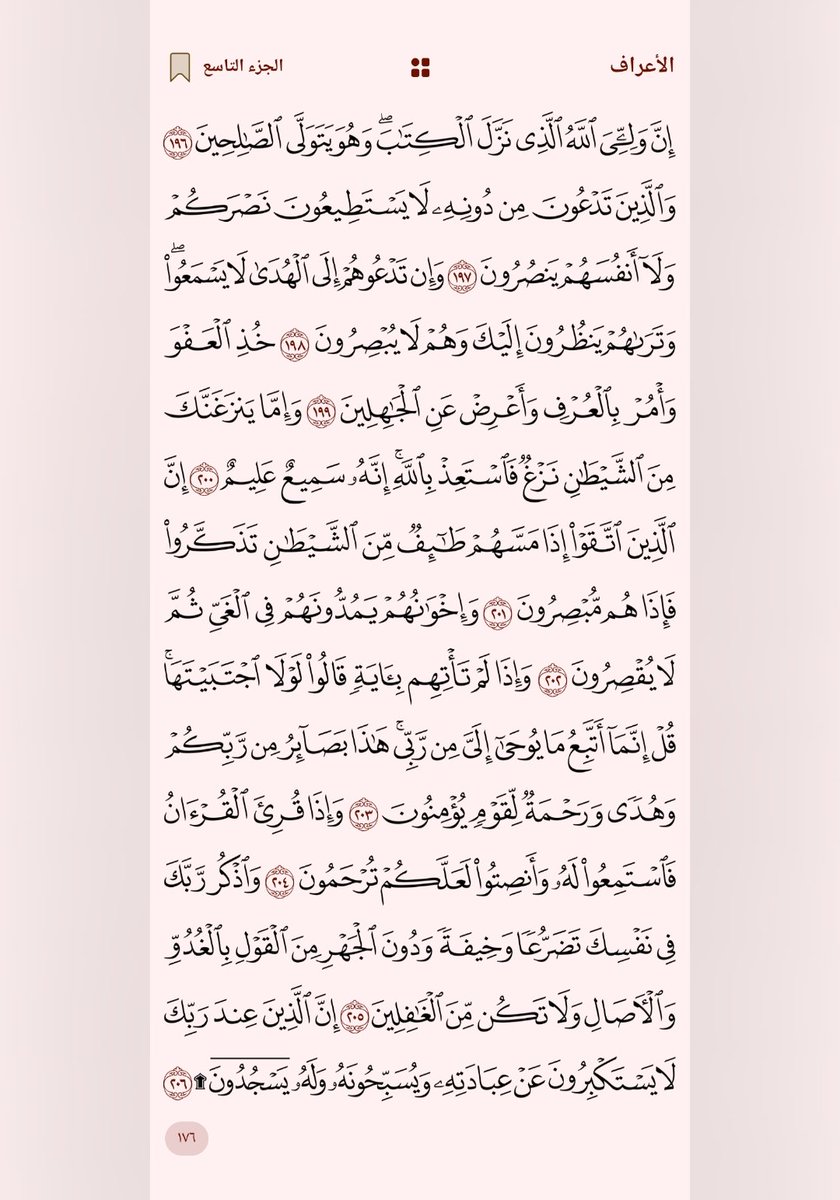 الأعراف
الجزء التاسع
إِنَّ وَلِـِّۧيَ ٱللَّهُ ٱلَّذِى نَزَّلَ ٱلْكِتَٰبَ ۖ وَهُوَ يَتَوَلَّى ٱلصَّٰلِحِينَ ١٩٦
وَٱلَّذِينَ تَدْعُونَ مِن دُونِهِۦ لَا يَسْتَطِيعُونَ نَصْرَكُمْ
وَلَآ أَنفُسَهُمْ يَنصُرُونَ ١٩٧ وَإِن تَدْعُوهُمْ إِلَى ٱلْهُدَىٰ لَا يَسْمَعُوا۟ ۖ
وَتَرَىٰهُمْ يَنظُرُونَ إِلَيْكَ وَهُمْ لَا يُبْصِرُونَ ١٩٨ خُذِ ٱلْعَفْوَ
وَأْمُرْ بِٱلْعُرْفِ وَأَعْرِضْ عَنِ ٱلْجَٰهِلِينَ ١٩٩ وَإِمَّا يَنزَغَنَّكَ
مِنَ ٱلشَّيْطَٰنِ نَزْغٌ فَٱسْتَعِذْ بِٱللَّهِ ۚ إِنَّهُۥ سَمِيعٌ عَلِيمٌ ٢٠٠ إِنَّ
ٱلَّذِينَ ٱتَّقَوْا۟ إِذَا مَسَّهُمْ طَٰٓئِفٌ مِّنَ ٱلشَّيْطَٰنِ تَذَكَّرُوا۟
فَإِذَا هُم مُّبْصِرُونَ ٢٠١ وَإِخْوَٰنُهُمْ يَمُدُّونَهُمْ فِى ٱلْغَىِّ ثُمَّ
لَا يُقْصِرُونَ ٢٠٢ وَإِذَا لَمْ تَأْتِهِم بِـَٔايَةٍ قَالُوا۟ لَوْلَا ٱجْتَبَيْتَهَا ۚ
قُلْ إِنَّمَآ أَتَّبِعُ مَا يُوحَىٰٓ إِلَىَّ مِن رَّبِّى ۚ هَٰذَا بَصَآئِرُ مِن رَّبِّكُمْ
وَهُدًى وَرَحْمَةٌ لِّقَوْمٍ يُؤْمِنُونَ ٢٠٣ وَإِذَا قُرِئَ ٱلْقُرْءَانُ
فَٱسْتَمِعُوا۟ لَهُۥ وَأَنصِتُوا۟ لَعَلَّكُمْ تُرْحَمُونَ ٢٠٤ وَٱذْكُر رَّبَّكَ
فِى نَفْسِكَ تَضَرُّعًا وَخِيفَةً وَدُونَ ٱلْجَهْرِ مِنَ ٱلْقَوْلِ بِٱلْغُدُوِّ
وَٱلْـَٔاصَالِ وَلَا تَكُن مِّنَ ٱلْغَٰفِلِينَ ٢٠٥ إِنَّ ٱلَّذِينَ عِندَ رَبِّكَ
لَا يَسْتَكْبِرُونَ عَنْ عِبَادَتِهِۦ وَيُسَبِّحُونَهُۥ وَلَهُۥ يَسْجُدُونَ ۩ ٢٠٦
١٧٦